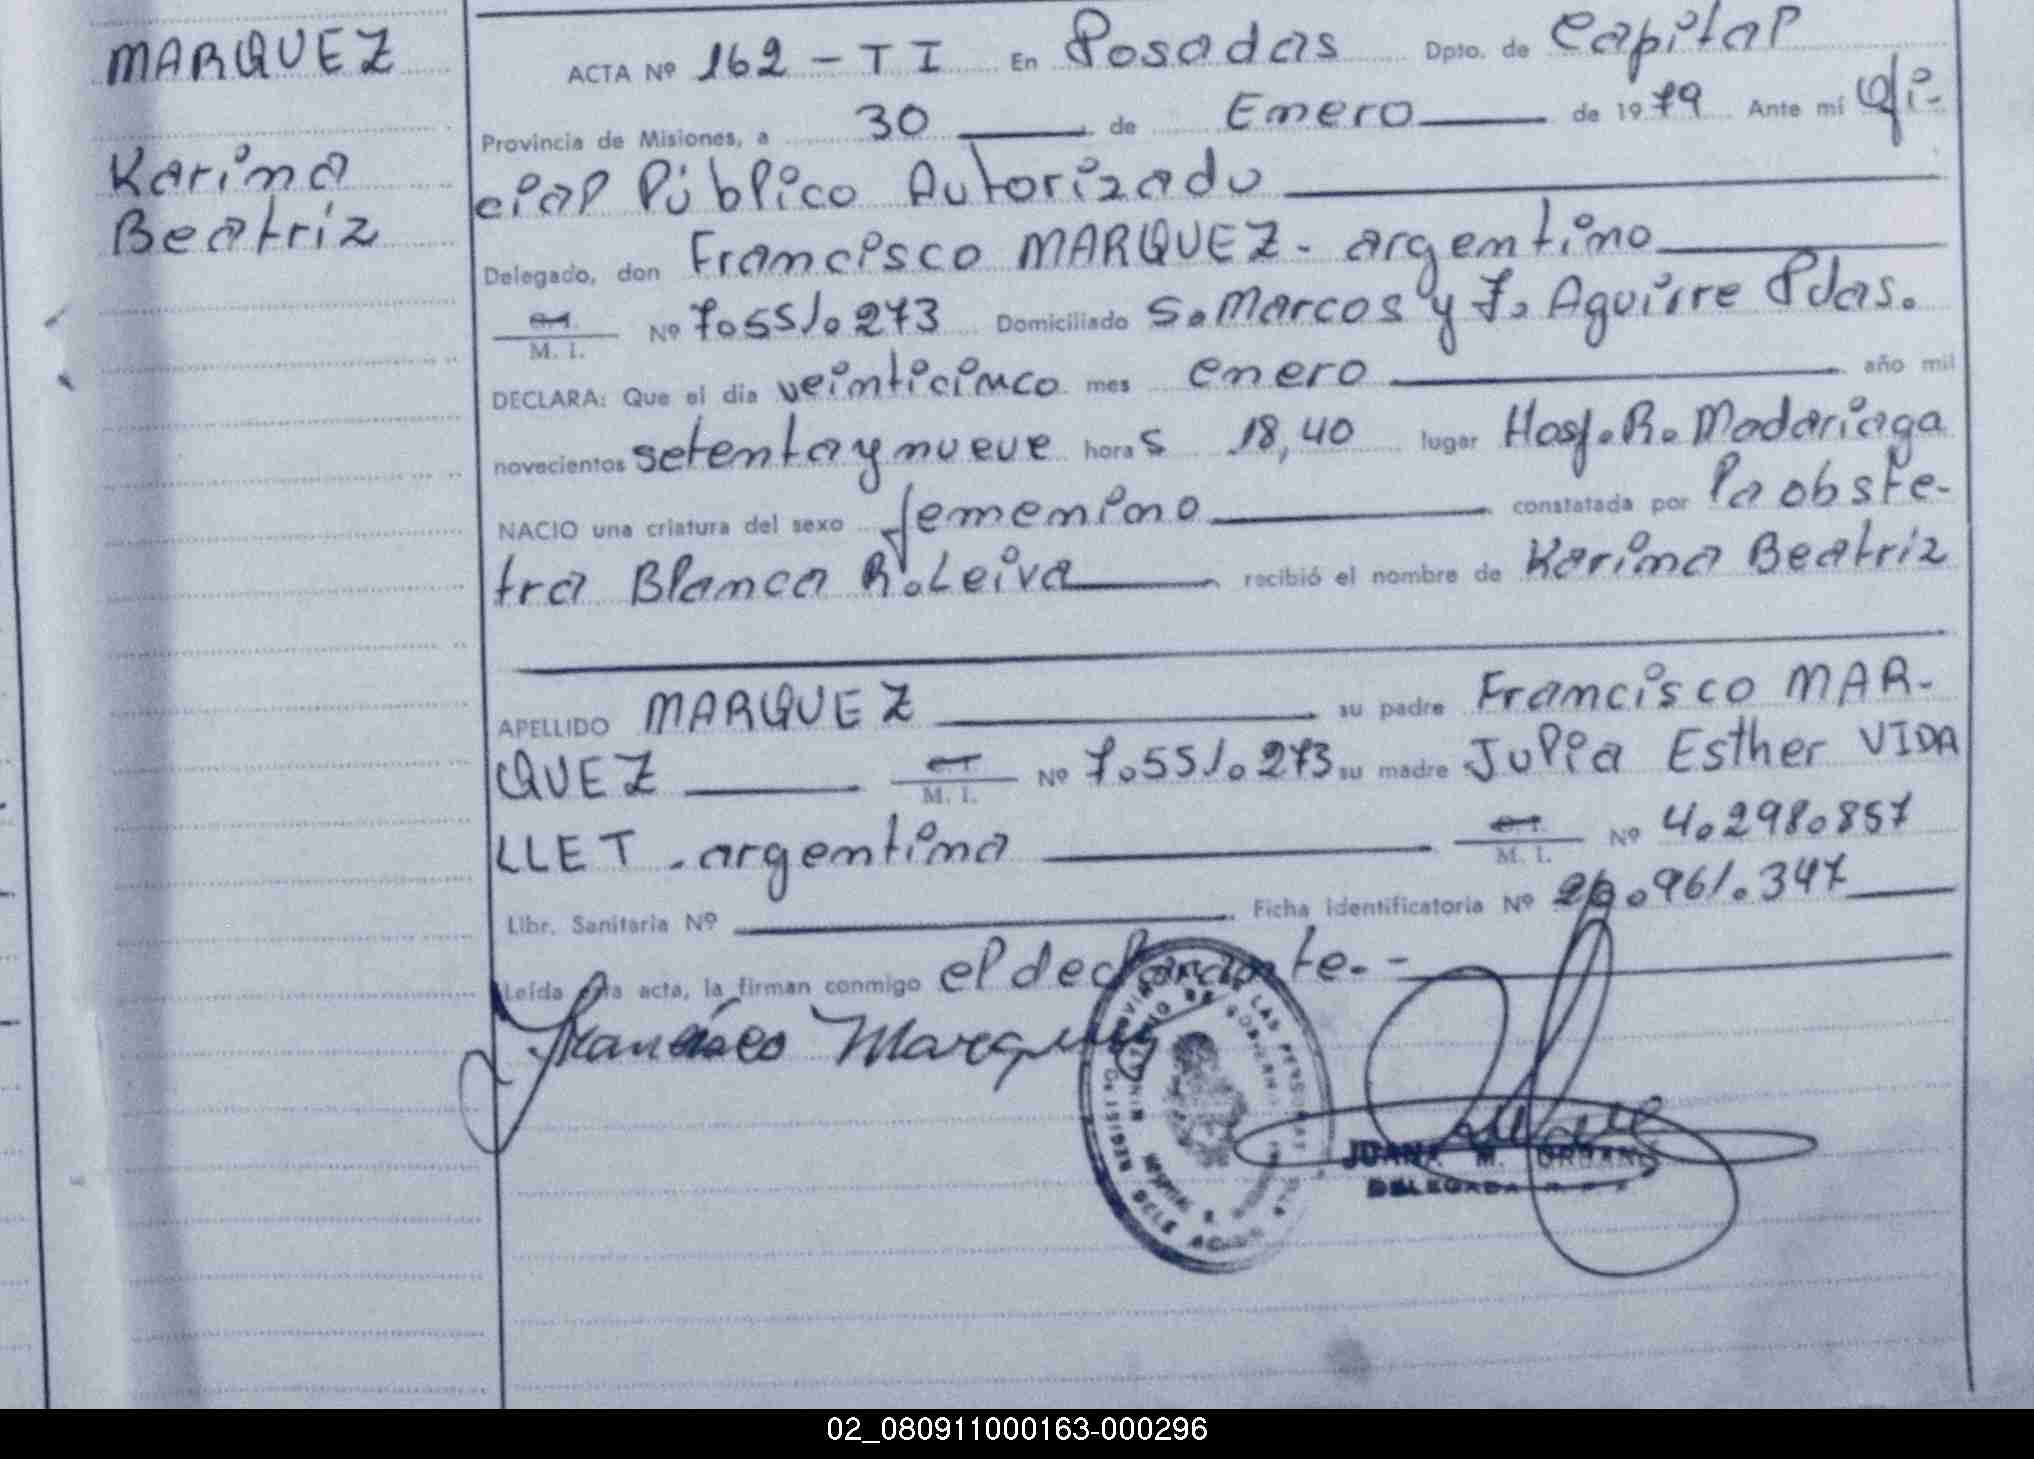 MARQUEZ
Karina
Beatriz
ACTA Nº 162 - T I En Posadas Dpto. de Capital
Provincia de Misiones, a 30 de Enero de 1979 Ante mí Ofi-
cial Público Autorizado
Delegado, don Francisco MARQUEZ - argentino
M. I. Nº 7.551.273 Domiciliado S. Marcos y J. Aguirre Pdas.
DECLARA: Que el dia veinticinco mes enero año mil
novecientos setenta y nueve horas 18,40 lugar Hosp. R. Madariaga
NACIO una criatura del sexo femenino constatada por la obste-
tra Blanca R. Leiva recibió el nombre de Karina Beatriz
APELLIDO MARQUEZ su padre Francisco MAR-
QUEZ M. I. Nº 7.551.273 su madre Julia Esther VIDA
LLET - argentina M. I. Nº 4.298.857
Libr. Sanitaria Nº Ficha identificatoria Nº .961.347
Leída esta acta, la firman conmigo el declarante. -
Francisco Marquez
LAS PERSONAS
JUANA M.
DELEGADA
02_080911000163-000296